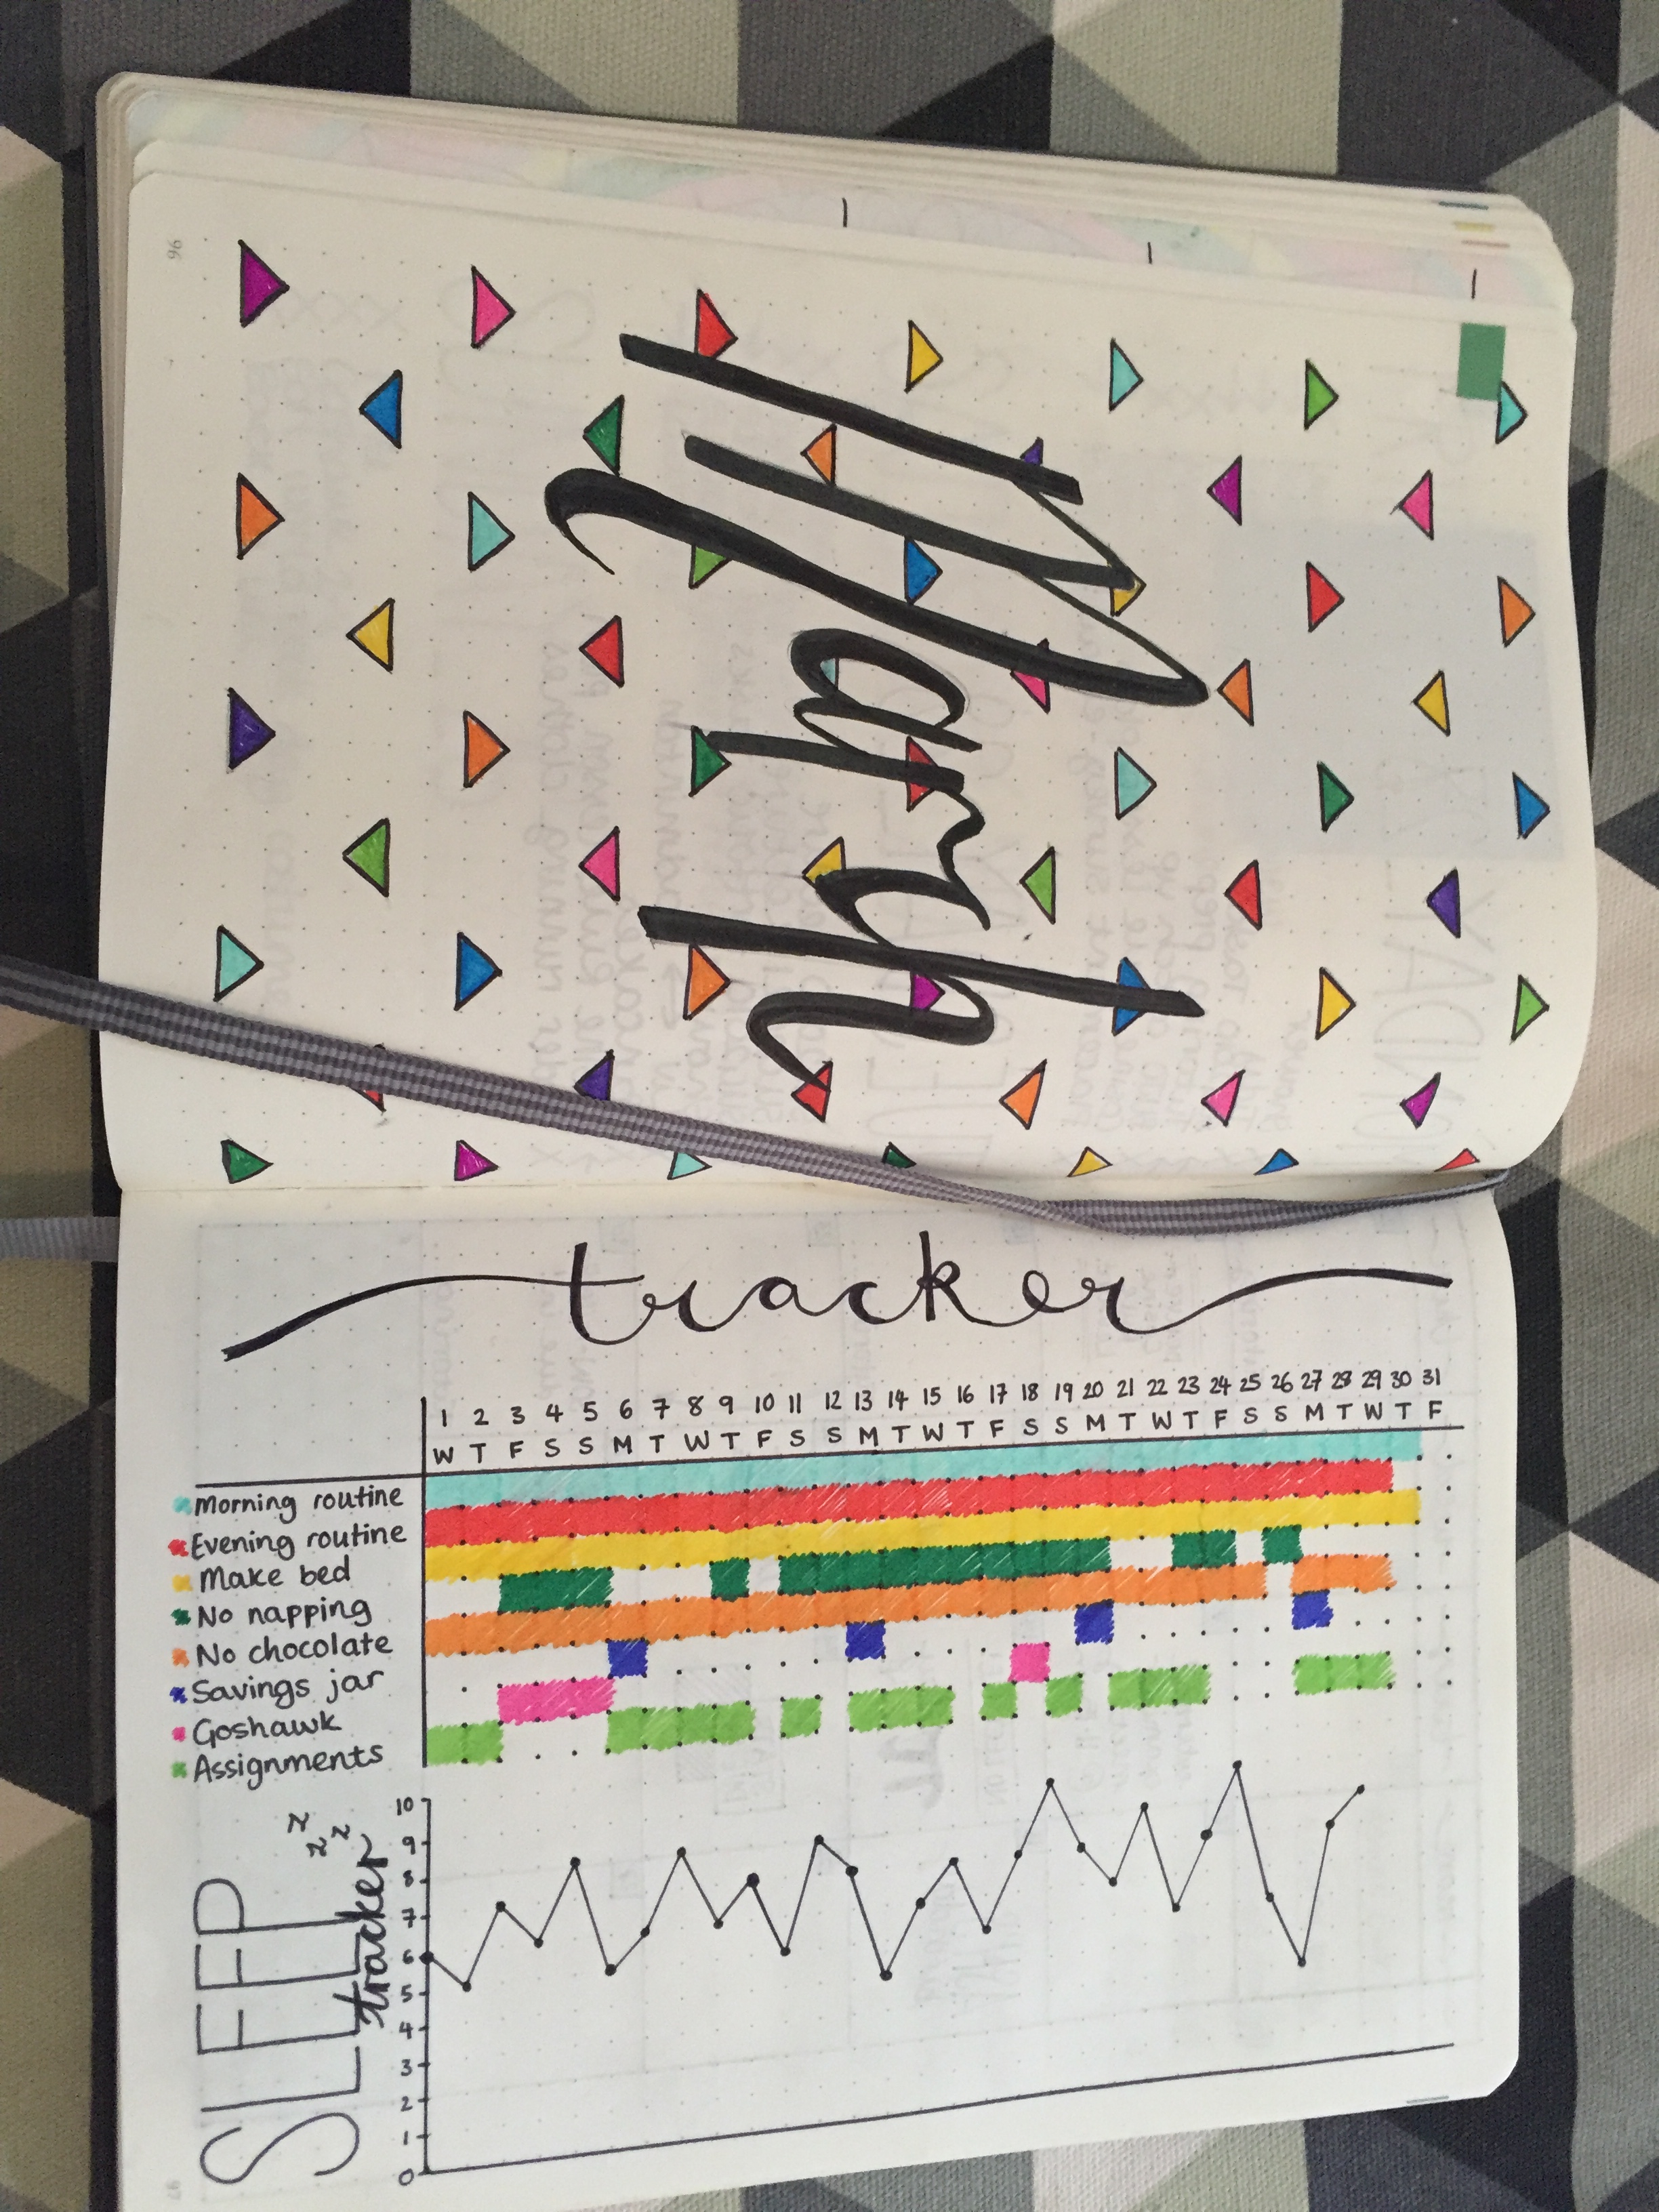 96
March
tracker
1 2 3 4 5 6 7 8 9 10 11 12 13 14 15 16 17 18 19 20 21 22 23 24 25 26 27 28 29 30 31
W T F S S M T W T F S S M T W T F S S M T W T F S S M T W T F
Morning routine
Evening routine
Make bed
No napping
No chocolate
Savings jar
Goshawk
Assignments
SLEEP
tracker
z z z
10
9
8
7
6
5
4
3
2
1
0
97